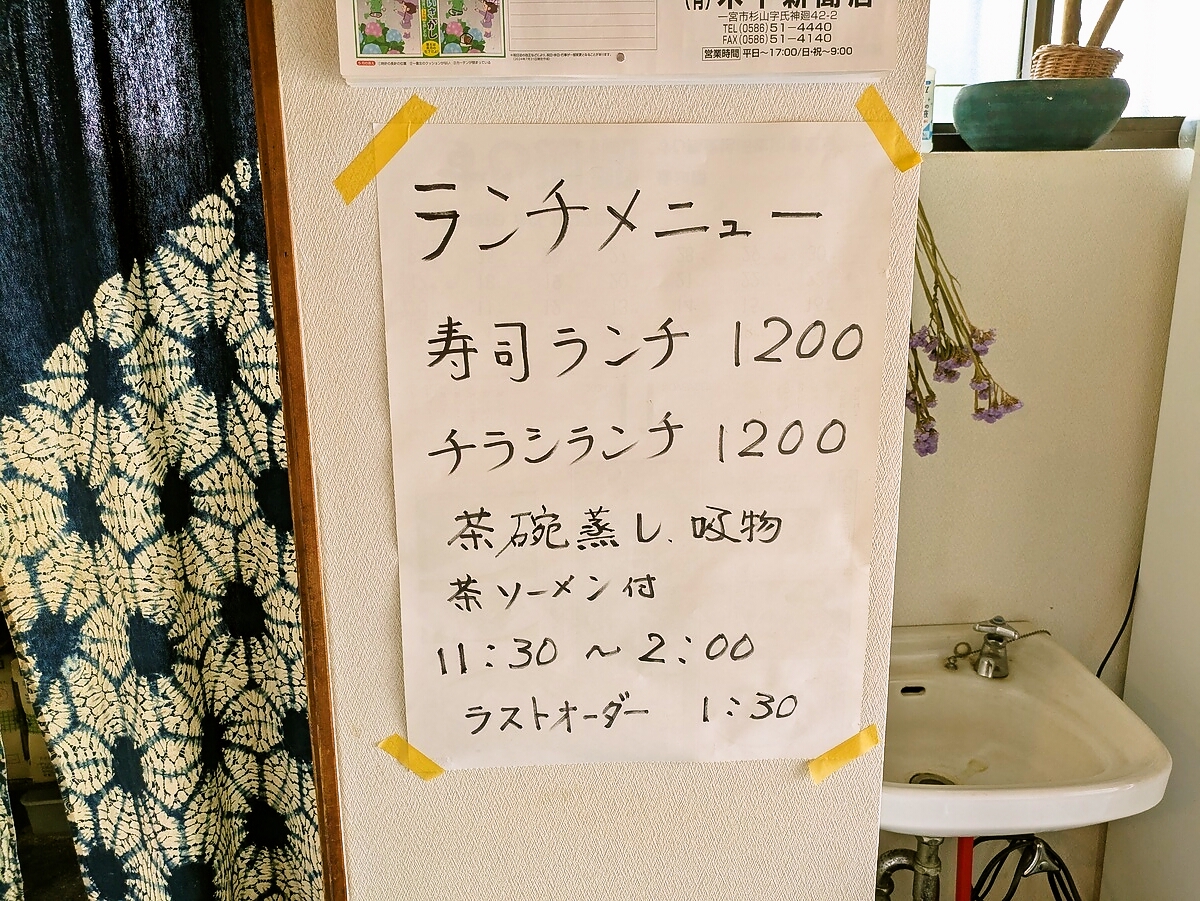 (有)木下新聞店
一宮市杉山字氏神廻42-2
TEL(0586)51-4440
FAX(0586)51-4140
営業時間 平日~17:00/日・祝~9:00
ランチメニュー
寿司ランチ 1200
チラシランチ 1200
茶碗蒸し、吸物
茶ソーメン付
11:30 ~ 2:00
ラストオーダー 1:30